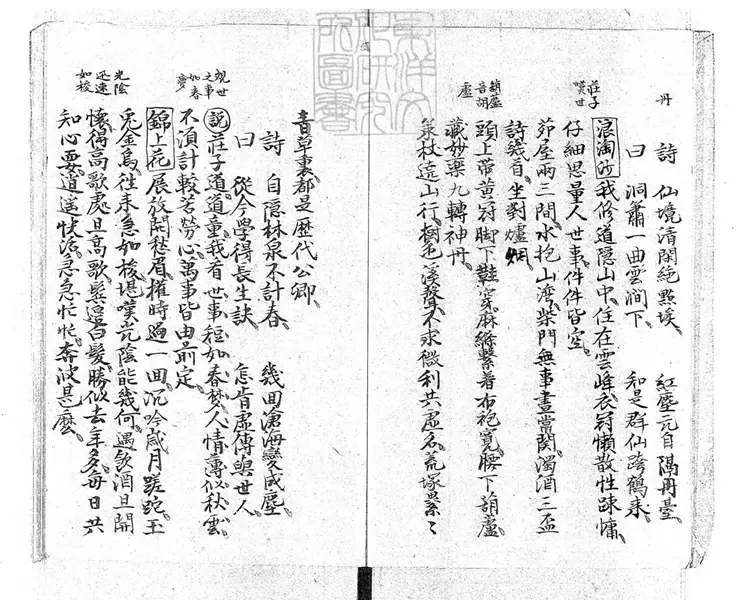 丹
詩　仙境清閑絶點埃　紅塵元自隔丹臺
曰　洞簫一曲雲澗下　知是群仙跨鶴來
莊子
嘆世
浪淘沙　我修道隱山中住在雲峰衣冠懶散性踈慵
仔細思量人世事件件皆空
茆屋兩三間水抱山灣柴門無事晝常関濁酒三盃
詩幾首坐對爐烟
葫蘆
音胡
盧
頭上帶黄冠脚下鞋寬麻絲繫着布袍寬腰下葫蘆
藏妙藥九轉神丹
策杖遠山行樹色溪聲不求微利共虛名荒塚纍〻
青草裏都是歷代公卿
詩　自隱林泉不計春　幾囬滄海變成塵
曰　從今學得長生訣　怎肯虛傳與世人
觀世
之事
如春
夢
説　莊子道道童我看世事短如春梦人情薄似秋雲
不湏計較苦勞心萬事皆由前定
錦上花　展放開愁眉權時過一囬沉吟歲月蹉跎玉
光陰
迅速
如梭
兎金烏徃來急如梭堪嘆光陰能幾何遇飲酒且開
懷得高歌處且高歌鬂邉白髪勝似去年多每日共
知心要逍遥快活急急忙忙奔波甚麽